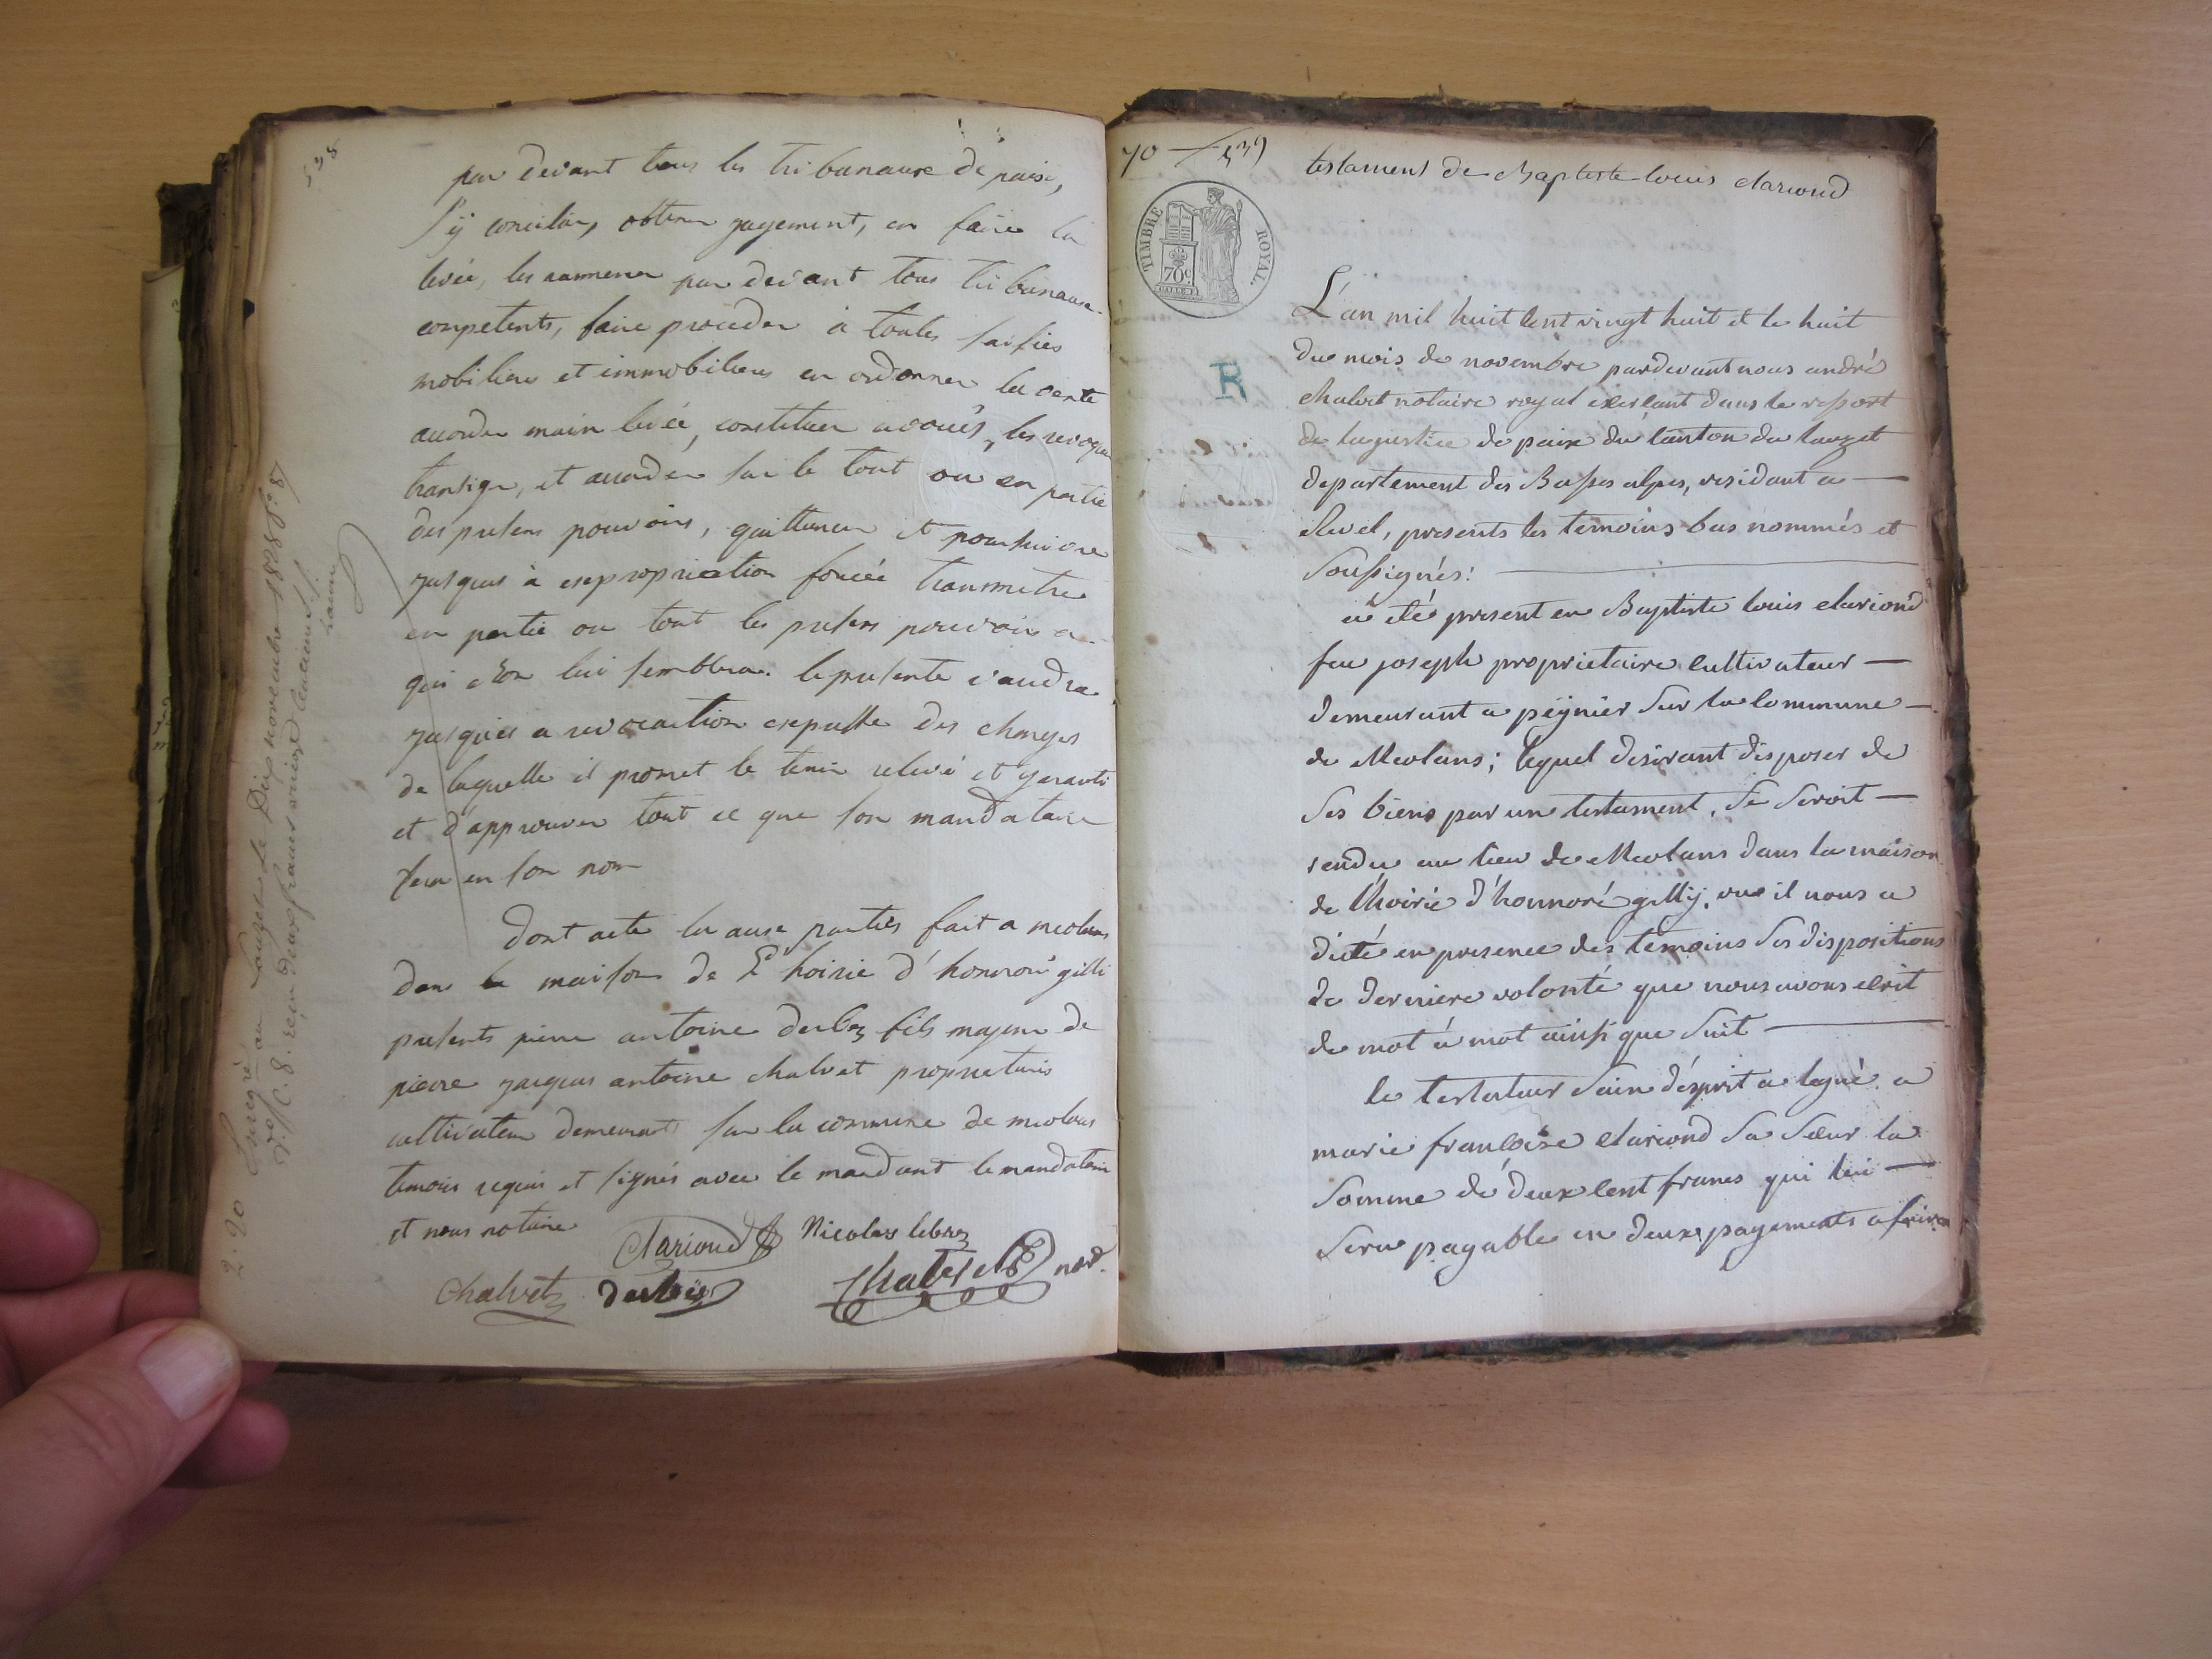 538
par devant tous les tribunaux de paix,
s'y concilier, obtenir jugement, en faire la
levée, les ramener par devant tous tribunaux
competents, faire proceder à toutes saisies
mobilieres et immobilieres en ordonner la vente
accorder main levée, constituer avoués, les revoquer
transiger, et accorder sur le tout ou en partie
des presens pouvoirs, quittancer et poursuivre
jusques à expropriation forcée transmetre
en partie ou tout les presens pouvoirs a
qui bon lui semblera. le presente vaudra
jusques a revocation expresse des charges
de laquelle il promet le tenir relevé et garanti
et d'approuver tout ce que son mandataire
fera en son nom
Dont acte lu aux parties fait a meolans
dans la maison de l'hoirie d'honnoré gilli
presents pierre antoine derbez fils majeur de
pierre jacques antoine chalvet proprietaires
cultivateurs demeurants sur la commune de meolans
temoins requis et signés avec le mandant le mandataire
et nous notaire
Clariond Nicolas lebre
Chalvet derbez Chalvet not.
2-20 Enregré au Lauzet le Dix novembre 1828 fo. 87
vo. C. 8. reçu deux francs
70 539
testament de Baptiste louis clariond
TIMBRE ROYAL
70c
L'an mil huit cent vingt huit et le huit
du mois de novembre pardevant nous andré
chalvet notaire royal exerçant dans le ressort
de la justice de paix du canton du lauzet
departement des Basses alpes, residant a
Revel, presents les temoins bas nommés et
soussignés:
a été present en Baptiste louis clariond
feu joseph proprietaire cultivateur
demeurant a peynier sur la commune
de Meolans; lequel desirant disposer de
ses biens par un testament, se seroit
rendu au lieu de Meolans dans la maison
de l'hoirie d'honnoré gilly, ou il nous a
dicté en presence des temoins ses dispositions
de derniere volonté que nous avons ecrit
de mot à mot ainsi que suit
le testateur sain d'ésprit a legué a
marie françoise clariond sa sœur la
somme de deux cent francs qui lui
sera payable en deux payements a faire
R